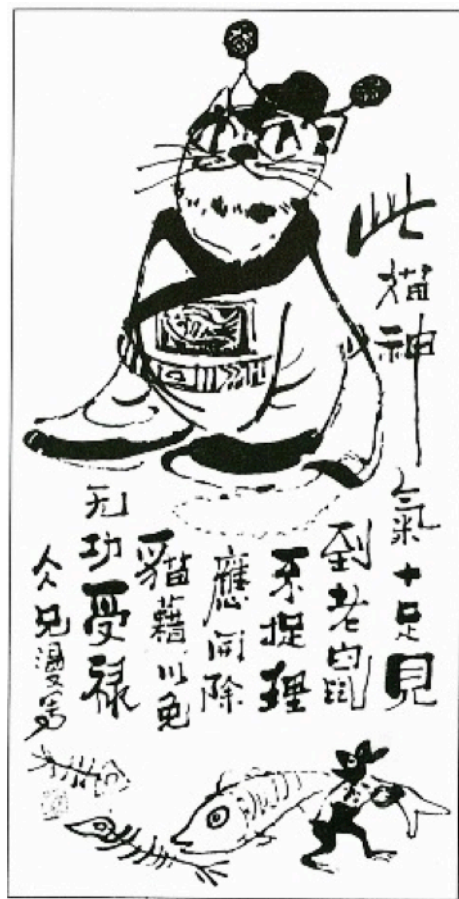 此猫神氣十足見
到老鼠
不捉理
應開除
貓藉以免
无功受禄